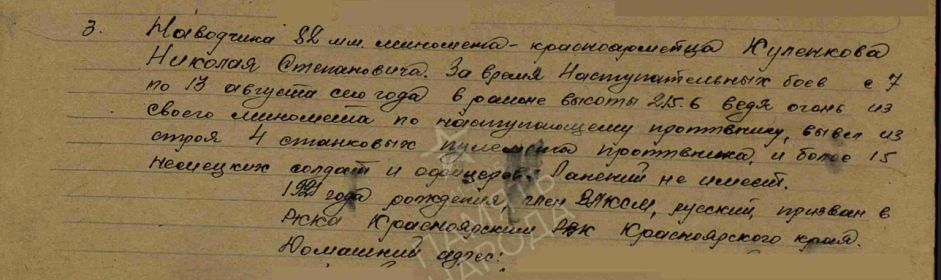 3. Наводчика 82 мм. миномета - красноармейца Куленкова
Николая Степановича. За время наступательных боев с 7
по 13 августа сего года в районе высоты 215.6 ведя огонь из
своего миномета по наступающему противнику, вывел из
строя 4 становых пулемета противника, и более 15
немецких солдат и офицеров. Ранений не имеет.
1921 года рождения, член ВЛКСМ, русский, призван в
РККА Красноярским РВК Красноярского края.
Домашний адрес:
ПАМЯТЬ
НАРОДА